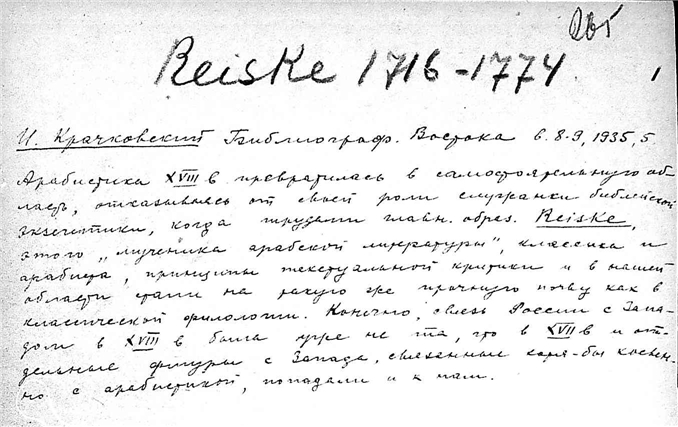 265
Reiske 1716-1774
1
И. Крачковский Библиограф. Востока в. 8-9, 1935, 5
Арабистика XVIII в превратилась в самостоятельную об-
ласть, отказываясь от своей роли служанки библейской
экзегетики, когда трудами главн. образ. Reiske,
этого „мученика арабской литературы", классика и
арабиста, принципы текстуальной критики и в нашей
области стали на такую же прочную почву как в
классической филологии. Конечно, связь России с Запа-
дом в XVIII в была уже не та, что в XVII в и от-
дельные фигуры с Запада, связанные хотя-бы косвен-
но с арабистикой, попадали и к нам.